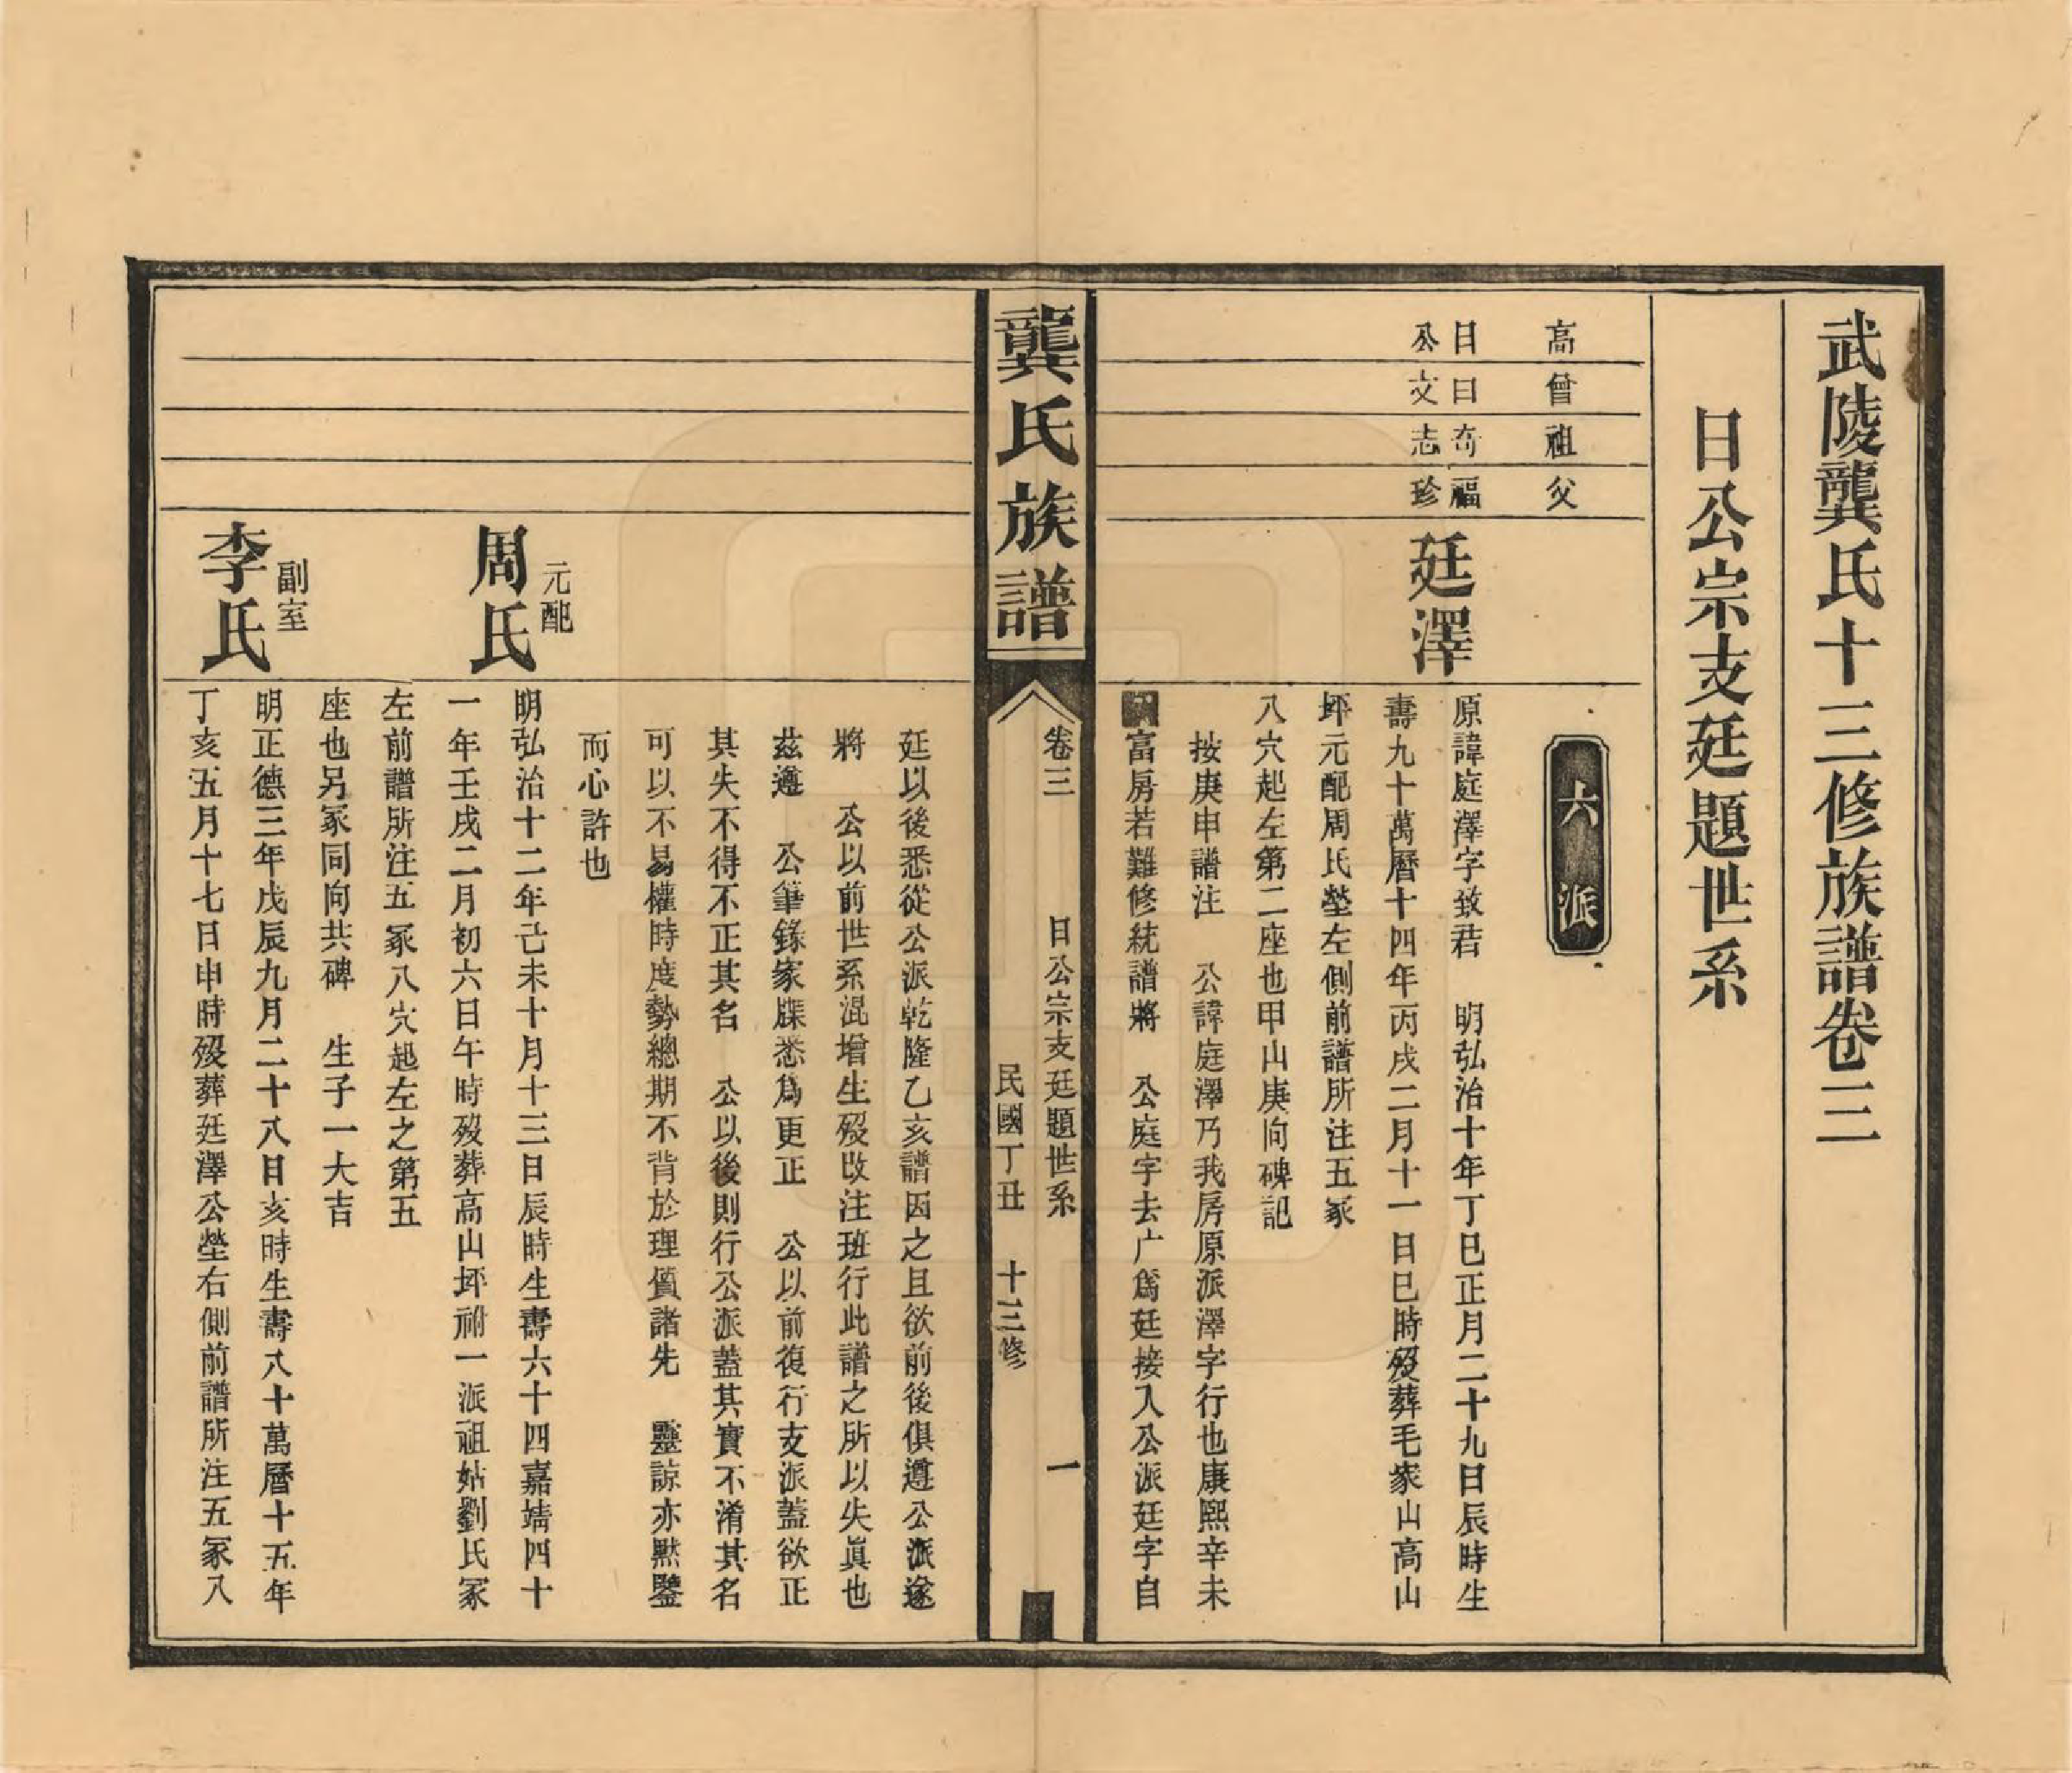 武陵龔氏十三修族譜卷三
日公宗支廷題世系
六派
高曾祖父
日曰奇福
公文志珍
廷澤
原諱庭澤字致君　明弘治十年丁巳正月二十九日辰時生
壽九十萬曆十四年丙戌二月十一日巳時歿葬毛家山高山
坪元配周氏塋左側前譜所注五冢
八穴起左第二座也甲山庚向碑記
按庚申譜注　公諱庭澤乃我房原派澤字行也康熙辛未
富房若難修統譜將　公庭字去广爲廷接入公派廷字自
龔氏族譜
卷三　日公宗支廷題世系　一
民國丁丑　十三修
廷以後悉從公派乾隆乙亥譜因之且欲前後俱遵公派遂
將　公以前世系混增生歿改注班行此譜之所以失眞也
茲遵　公筆錄家牒悉爲更正　公以前復行支派蓋欲正
其失不得不正其名　公以後則行公派蓋其實不淆其名
可以不易權時度勢總期不背於理質諸先　靈諒亦默鑒
而心許也
元配
周氏
明弘治十二年己未十月十三日辰時生壽六十四嘉靖四十
一年壬戌二月初六日午時歿葬高山坪祔一派祖姑劉氏冢
左前譜所注五冢八穴起左之第五
座也另冢同向共碑　生子一大吉
副室
李氏
明正德三年戊辰九月二十八日亥時生壽八十萬曆十五年
丁亥五月十七日申時歿葬廷澤公塋右側前譜所注五冢八